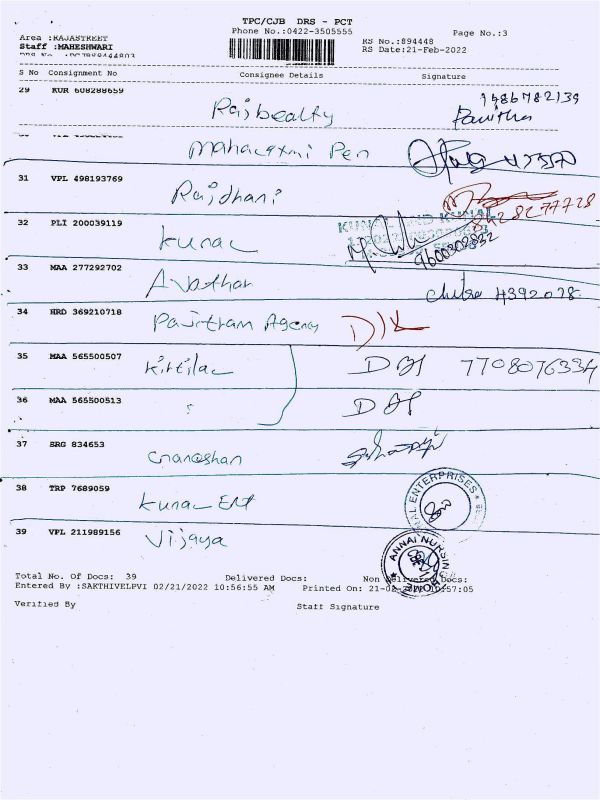 TPC/CJB DRS - PCT
Phone No.:0422-3505555
Page No.:3
Area :RAJASTREET
Staff :MAHESHWARI
RS No.:894448
RS Date:21-Feb-2022
S No Consignment No Consignee Details Signature
29 KUR 608288659 Rajbealty
Pavitha
Mahalaxmi Pen
31 VPL 498193769 Rajdhani 8428277728
32 PLI 200039119 Kunal 9600302832
33 MAA 277292702 Avathar Chitra 4392078
34 HRD 369210718 Pavitram Agency
35 MAA 565500507 Kirtilal 7708076334
36 MAA 565500513
37 SRG 834653 Gnaneshan
38 TRP 7689059 Kunal Ent
ENTERPRISES
39 VPL 211989156 Vijaya
ANNAI NURSING HOME
Total No. Of Docs: 39 Delivered Docs: Non Delivered Docs:
Entered By :SAKTHIVELPVI 02/21/2022 10:56:55 AM Printed On: 21-02-2022 10:57:05
Verified By Staff Signature